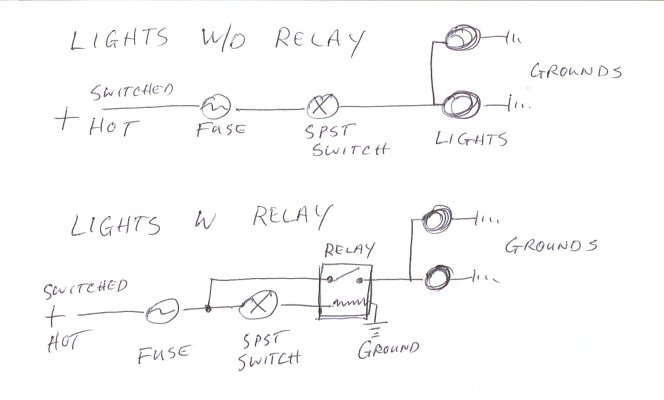 LIGHTS W/O RELAY
GROUNDS
SWITCHED
+ HOT
FUSE
SPST
SWITCH
LIGHTS
LIGHTS W RELAY
RELAY
GROUNDS
SWITCHED
+
HOT
FUSE
SPST
SWITCH
GROUND